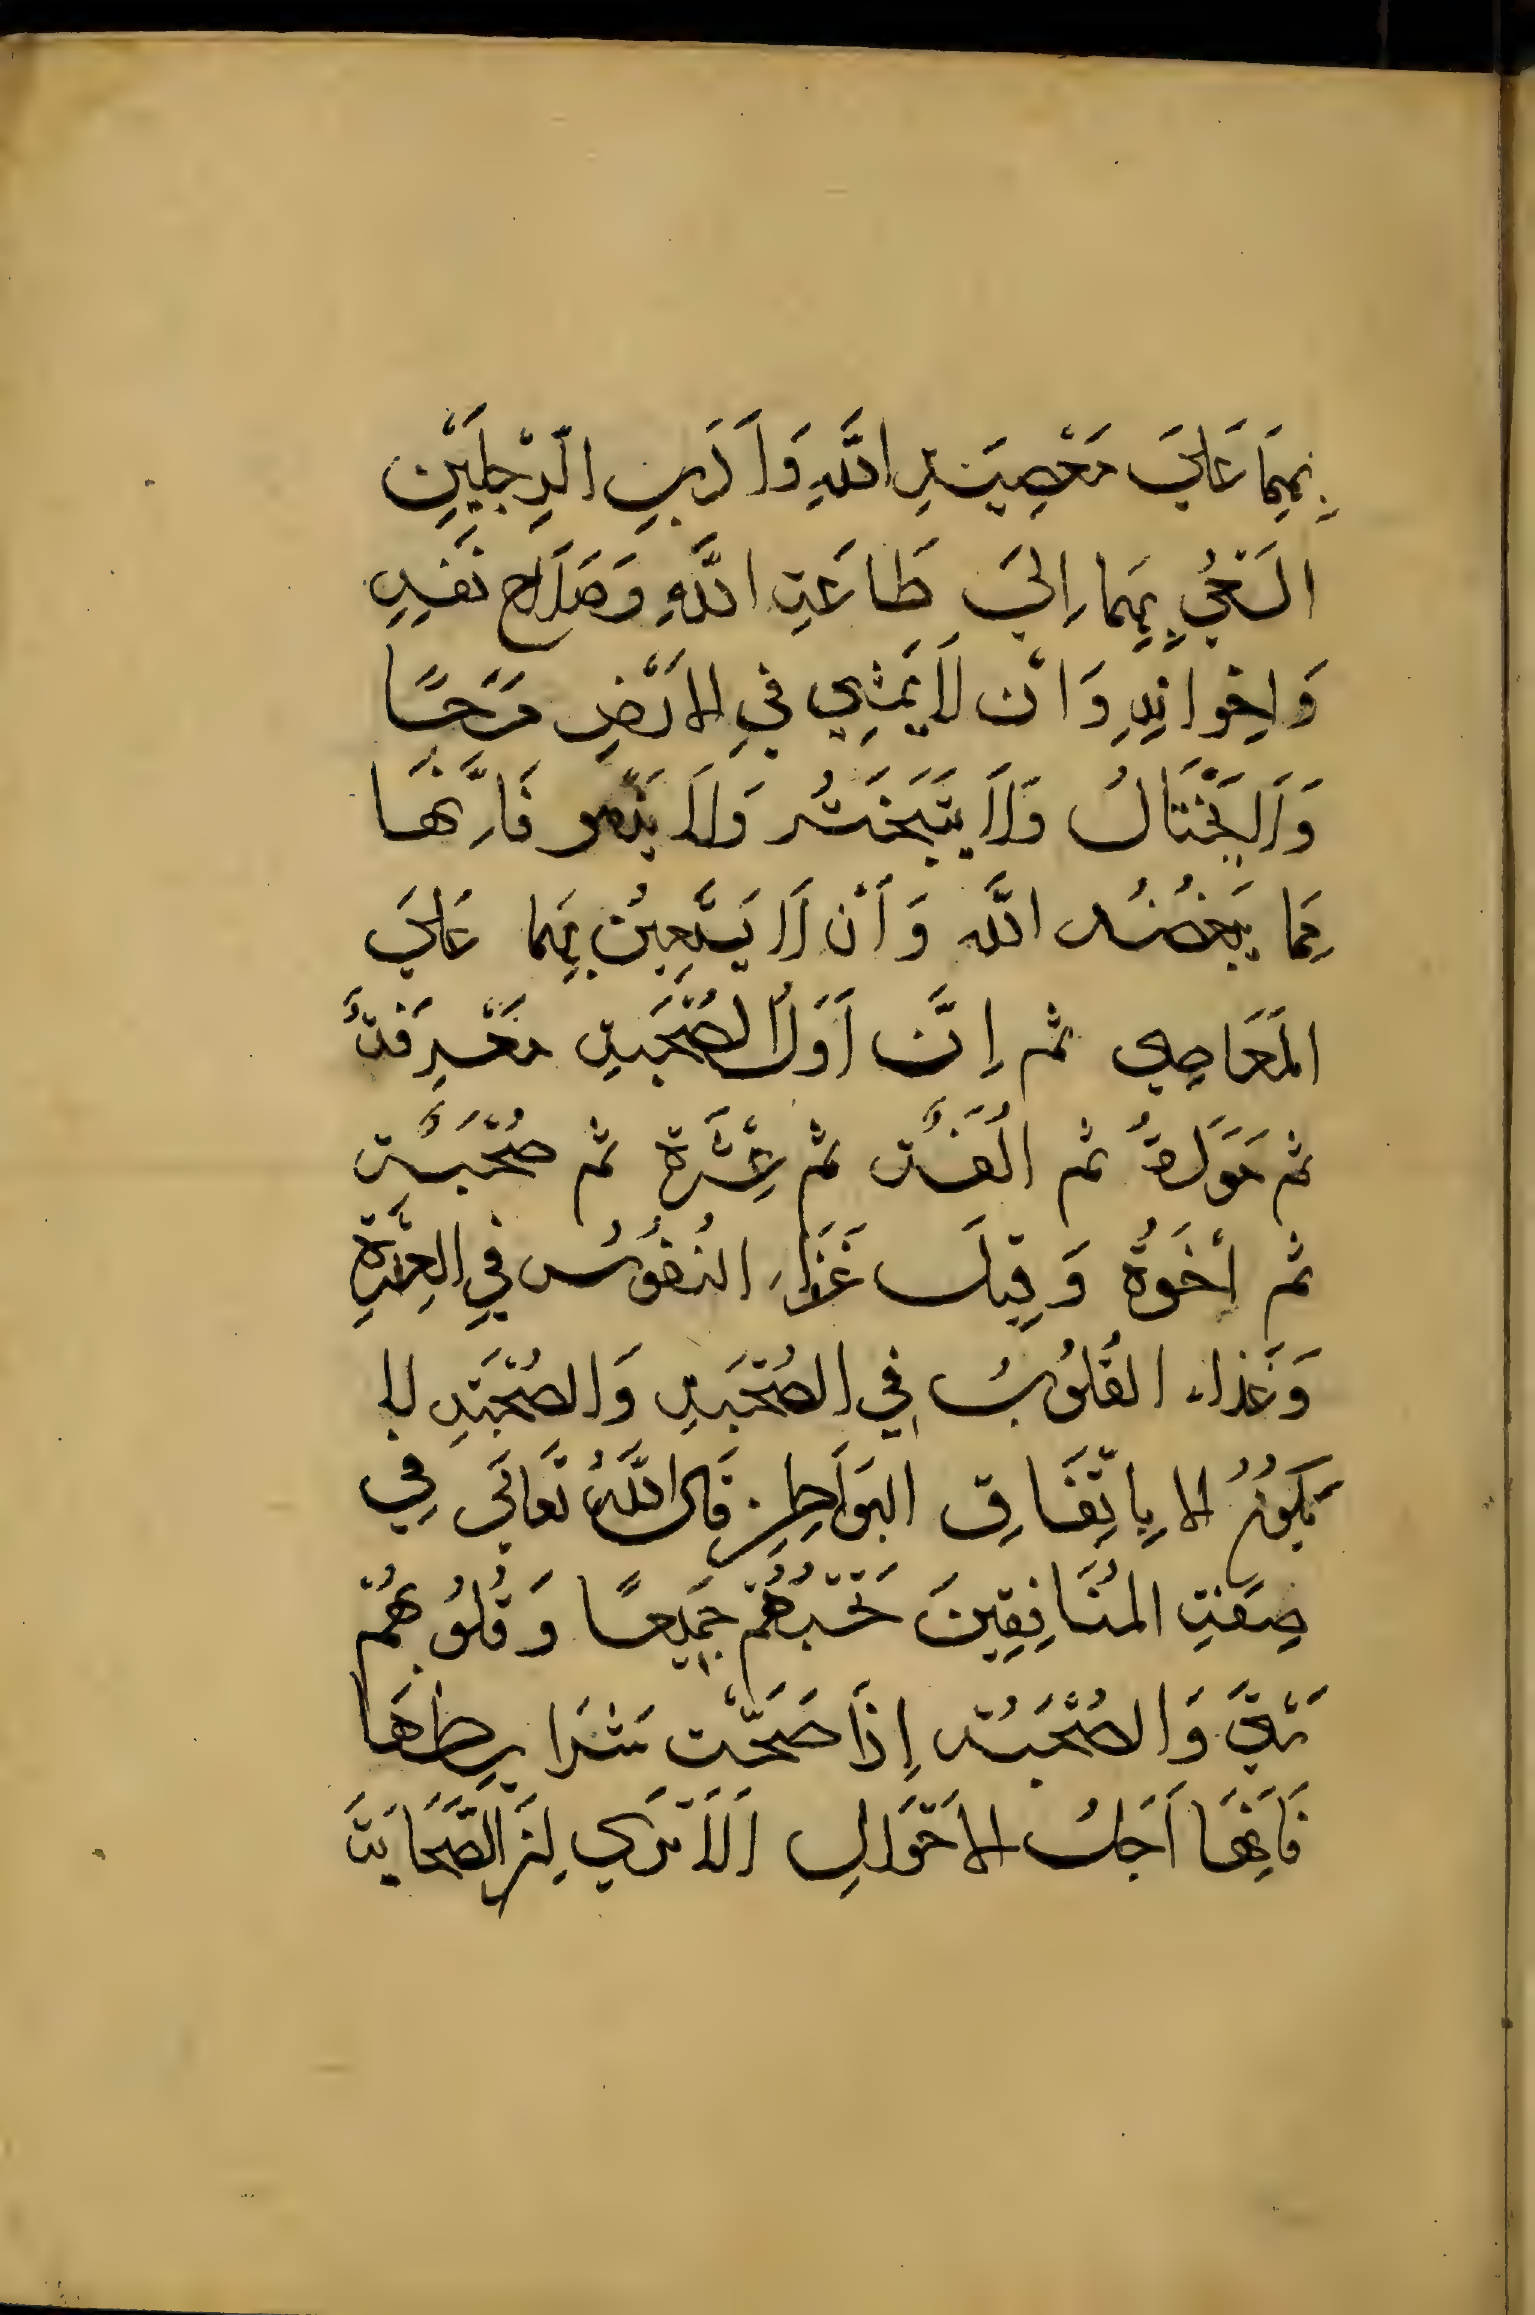 بِهِمَا عَلَىَ مَعْصِيَةِ اللَّهِ وَاَدَبِ الرِّجْلَيْنِ
السَعْىُ بِهِمَا اِلىَ طَاعَةِ اللَّهِ وَصَلَاح نَفسِهِ
وَاِخوانِهِ وَاَنْ لَا يَمْشِي فِي الاَرْضِ مَرَحًا
وَلَا يَخْتَالُ وَلَا يَتَبَخْتَرُ وَلَا فَاِنَّهَا
مِمَّا يَبْغُضُهُ اللَّه وَاَنْ لَا يَسْتَعِيْنُ بِهِمَا عَلىَ
المَعَاصِي ثم اِنَّ اَوَّلُ الصُحْبَةِ مَعْرِفَةٌ
ثم مَوَدَةٌ ثم الُفَةٌ ثم عِشْرَة ثم صُحْبَةٌ
ثم اُخَوَّةٌ وَقِيلَ غَذَاءِ النُفُوْسُ فِي العِشْرَةِ
وَغَذاء القُلُوْبُ فِي الصُحْبَةِ وَالصُحْبَةِ لا
يَكُوْنُ الا بِاتِّفَاقِ البَوَاطِنِ قَالَ اللَّهُ تَعَالَى فِي
صِفَةِ المُنَافِقِينَ تَحْسَبُهُمْ جَمِيعًا وَقُلُوبُهُمْ
شَتىَّ وَالصُحْبَةُ اِذَا صَحَّتْ شَرَايِطُهَا
فَاِنَّهَا اَجَلُ الاَحْوَالِ اَلَا تَرَي اِنَّ الصَّحَابَةَ